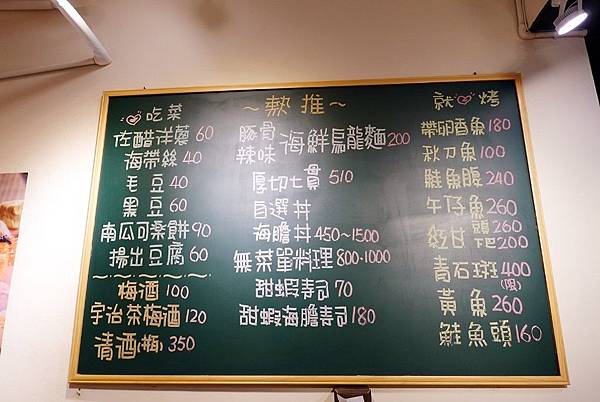 吃菜
佐醋洋蔥 60
海帶絲 40
毛豆 40
黑豆 60
南瓜可樂餅 90
揚出豆腐 60
梅酒 100
宇治茶梅酒 120
清酒(瓶) 350
~熱推~
豚骨
辣味 海鮮烏龍麵 200
厚切七貫 510
自選丼
海膽丼 450~1500
無菜單料理 800-1000
甜蝦壽司 70
甜蝦海膽壽司 180
就 烤
帶卵香魚 180
秋刀魚 100
鮭魚腹 240
午仔魚 260
紅甘 頭 260
下巴 200
青石斑 400
(限)
黃魚 260
鮭魚頭 160